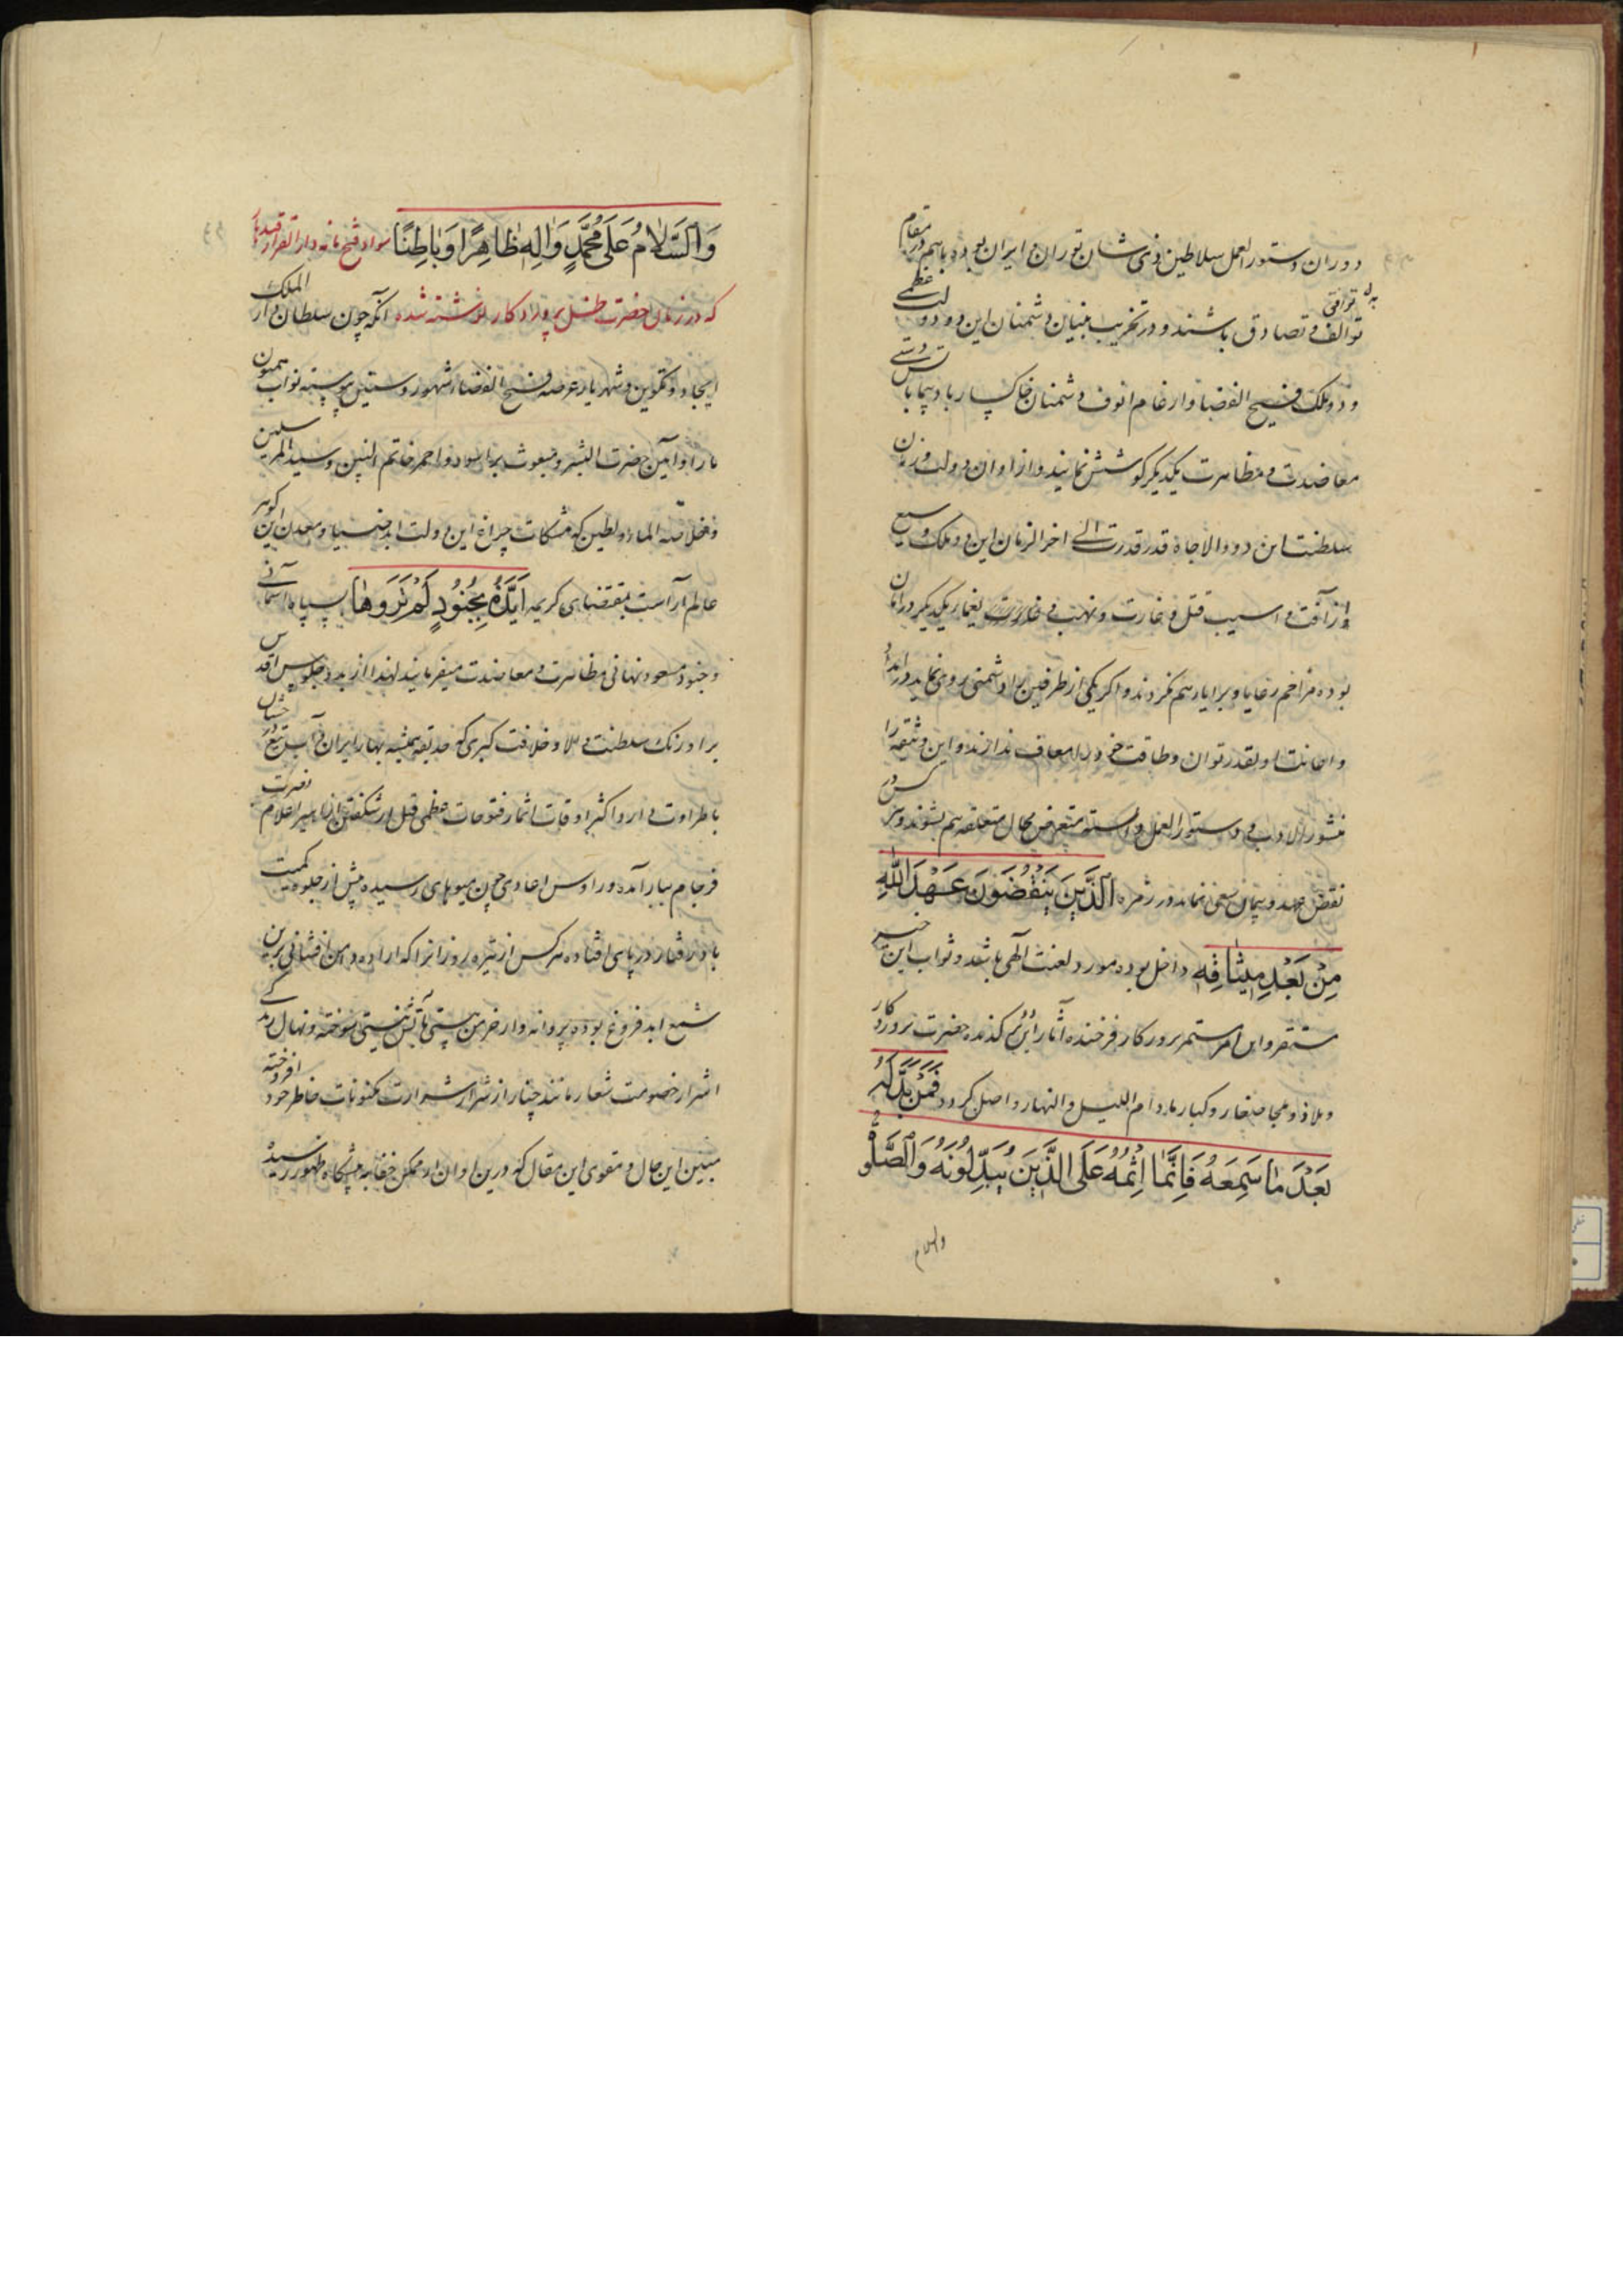 دوران و دستور العمل سلاطین ذی شان توران و ایران بوده با هم در مقام
توافق
توالف و تصادق باشند و در تخریب بنیان دشمنان این دو دولت عظمی
و دو ملک فسیح الفضا و ارغام انوف دشمنان خاکسار باد پیما
معاضدت و مظاهرت یکدیگر کوشش نمایند و از اوان دولت و زمان
سلطنت این دو والاجاه قدر قدرت الی اخر الزمان این دو ملک وسیع
از آفت و اسیب قتل و غارت و نهب و یغمار یکدیگر در امان
بوده مزاحم رعایا و برایا هم نکردند و اکر یکی از طرفین را دشمنی روی نماید در امداد
و اعانت او بقدر توان و طاقت خود را معاف ندارند و این وثیقه را
منشور الاداب و دستور العمل دانسته متعرض محال متعلقه هم نشوند و هرکس در
نقض عهد و پیمان سعی نماید در زمره الَّذينَ يَنْقُضُونَ عَهْدَ اللهِ
مِنْ بَعْدِ مِيثَاقِهِ داخل بوده مورد لعنت الهی باشد و ثواب این خیر
مستقر و این امر مستمر بروزکار فرخنده آثار کننده حضرت پروردکار
و ملاذ و ملجا صغار و کبار مادام اللیل و النهار واصل کردد فَمَنْ بَدَّلَهُ
بَعْدَ مَا سَمِعَهُ فَإِنَّمَا إِثْمُهُ عَلَى الَّذِينَ يُبَدِّلُونَهُ وَالصَّلٰوةُ
والسلام
وَالسَّلَامُ عَلَى مُحَمَّدٍ وَالِهِ ظَاهِرًا وَبَاطِنًا سواد فتح نامه دار القرار قندهار
که در زمان حضرت ظل پروردکار نوشته شده آنکه چون سلطان دار الملک
ایجاد و تکوین و شهریار عرصه فسیح الفضا شهور و سنین پیوسته نواب همیون
ما را و آیین حضرت البشر و مبعوث بر اسود و احمر خاتم النبیین و سید المرسلین
و خلاصه الماء و الطین که مشکات چراغ این دولت ابد ضیا و معدن این کوهر
عالم آراست بمقتضای کریمه أَيَّدَهُ بِجُنُودٍ لَمْ تَرَوْهَا بسپاه آسمانی
و جنود مسعود نهانی مظاهرت و معاضدت میفرمایند لهذا از بدو جلوس اقدس
بر اورنک سلطنت والا و خلافت کبری که حدیقه همیشه بهار ایران
با طراوت دارد اکثر اوقات اثمار فتوحات عظمی قبل از شکفتن ازاهیر اعلام نصرت
فرجام ببار آمده و رؤس اعادی چون میوهای رسیده پیش از جلوه کمیت
باد رفتار در پای افتاده هر کس از تیره روزانرا که اراده دامن افشانی برین
شمع ابد فروغ بوده پروانه وار خرمن هستی بآتش نیستی سوخته و نهال
اشرار خصومت شعار مانند چنار از شرار شرارت مکنونات خاطر خود افروخته
مبین این حال و مقوی این مقال که درین اوان از مکمن خفا به پیشکاه ظهور رسید